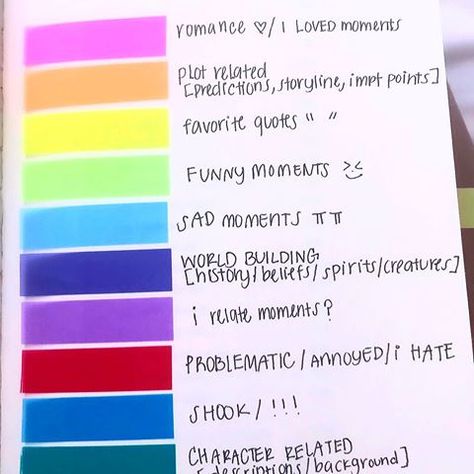 romance ♡/ I LOVED moments
plot related
[predictions, storyline, impt points]
favorite quotes " "
FUNNY MOMENTS >.<
SAD MOMENTS ㅠㅠ
WORLD BUILDING
[history/beliefs/spirits/creatures]
i relate moments?
PROBLEMATIC/annoyed/i HATE
SHOOK/!!!
CHARACTER RELATED
[descriptions/background]